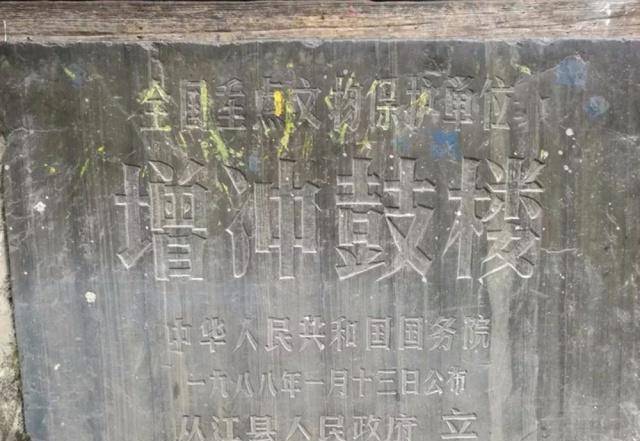 全国重点文物保护单位
增冲鼓楼
中华人民共和国国务院
一九八八年一月十三日公布
从江县人民政府 立